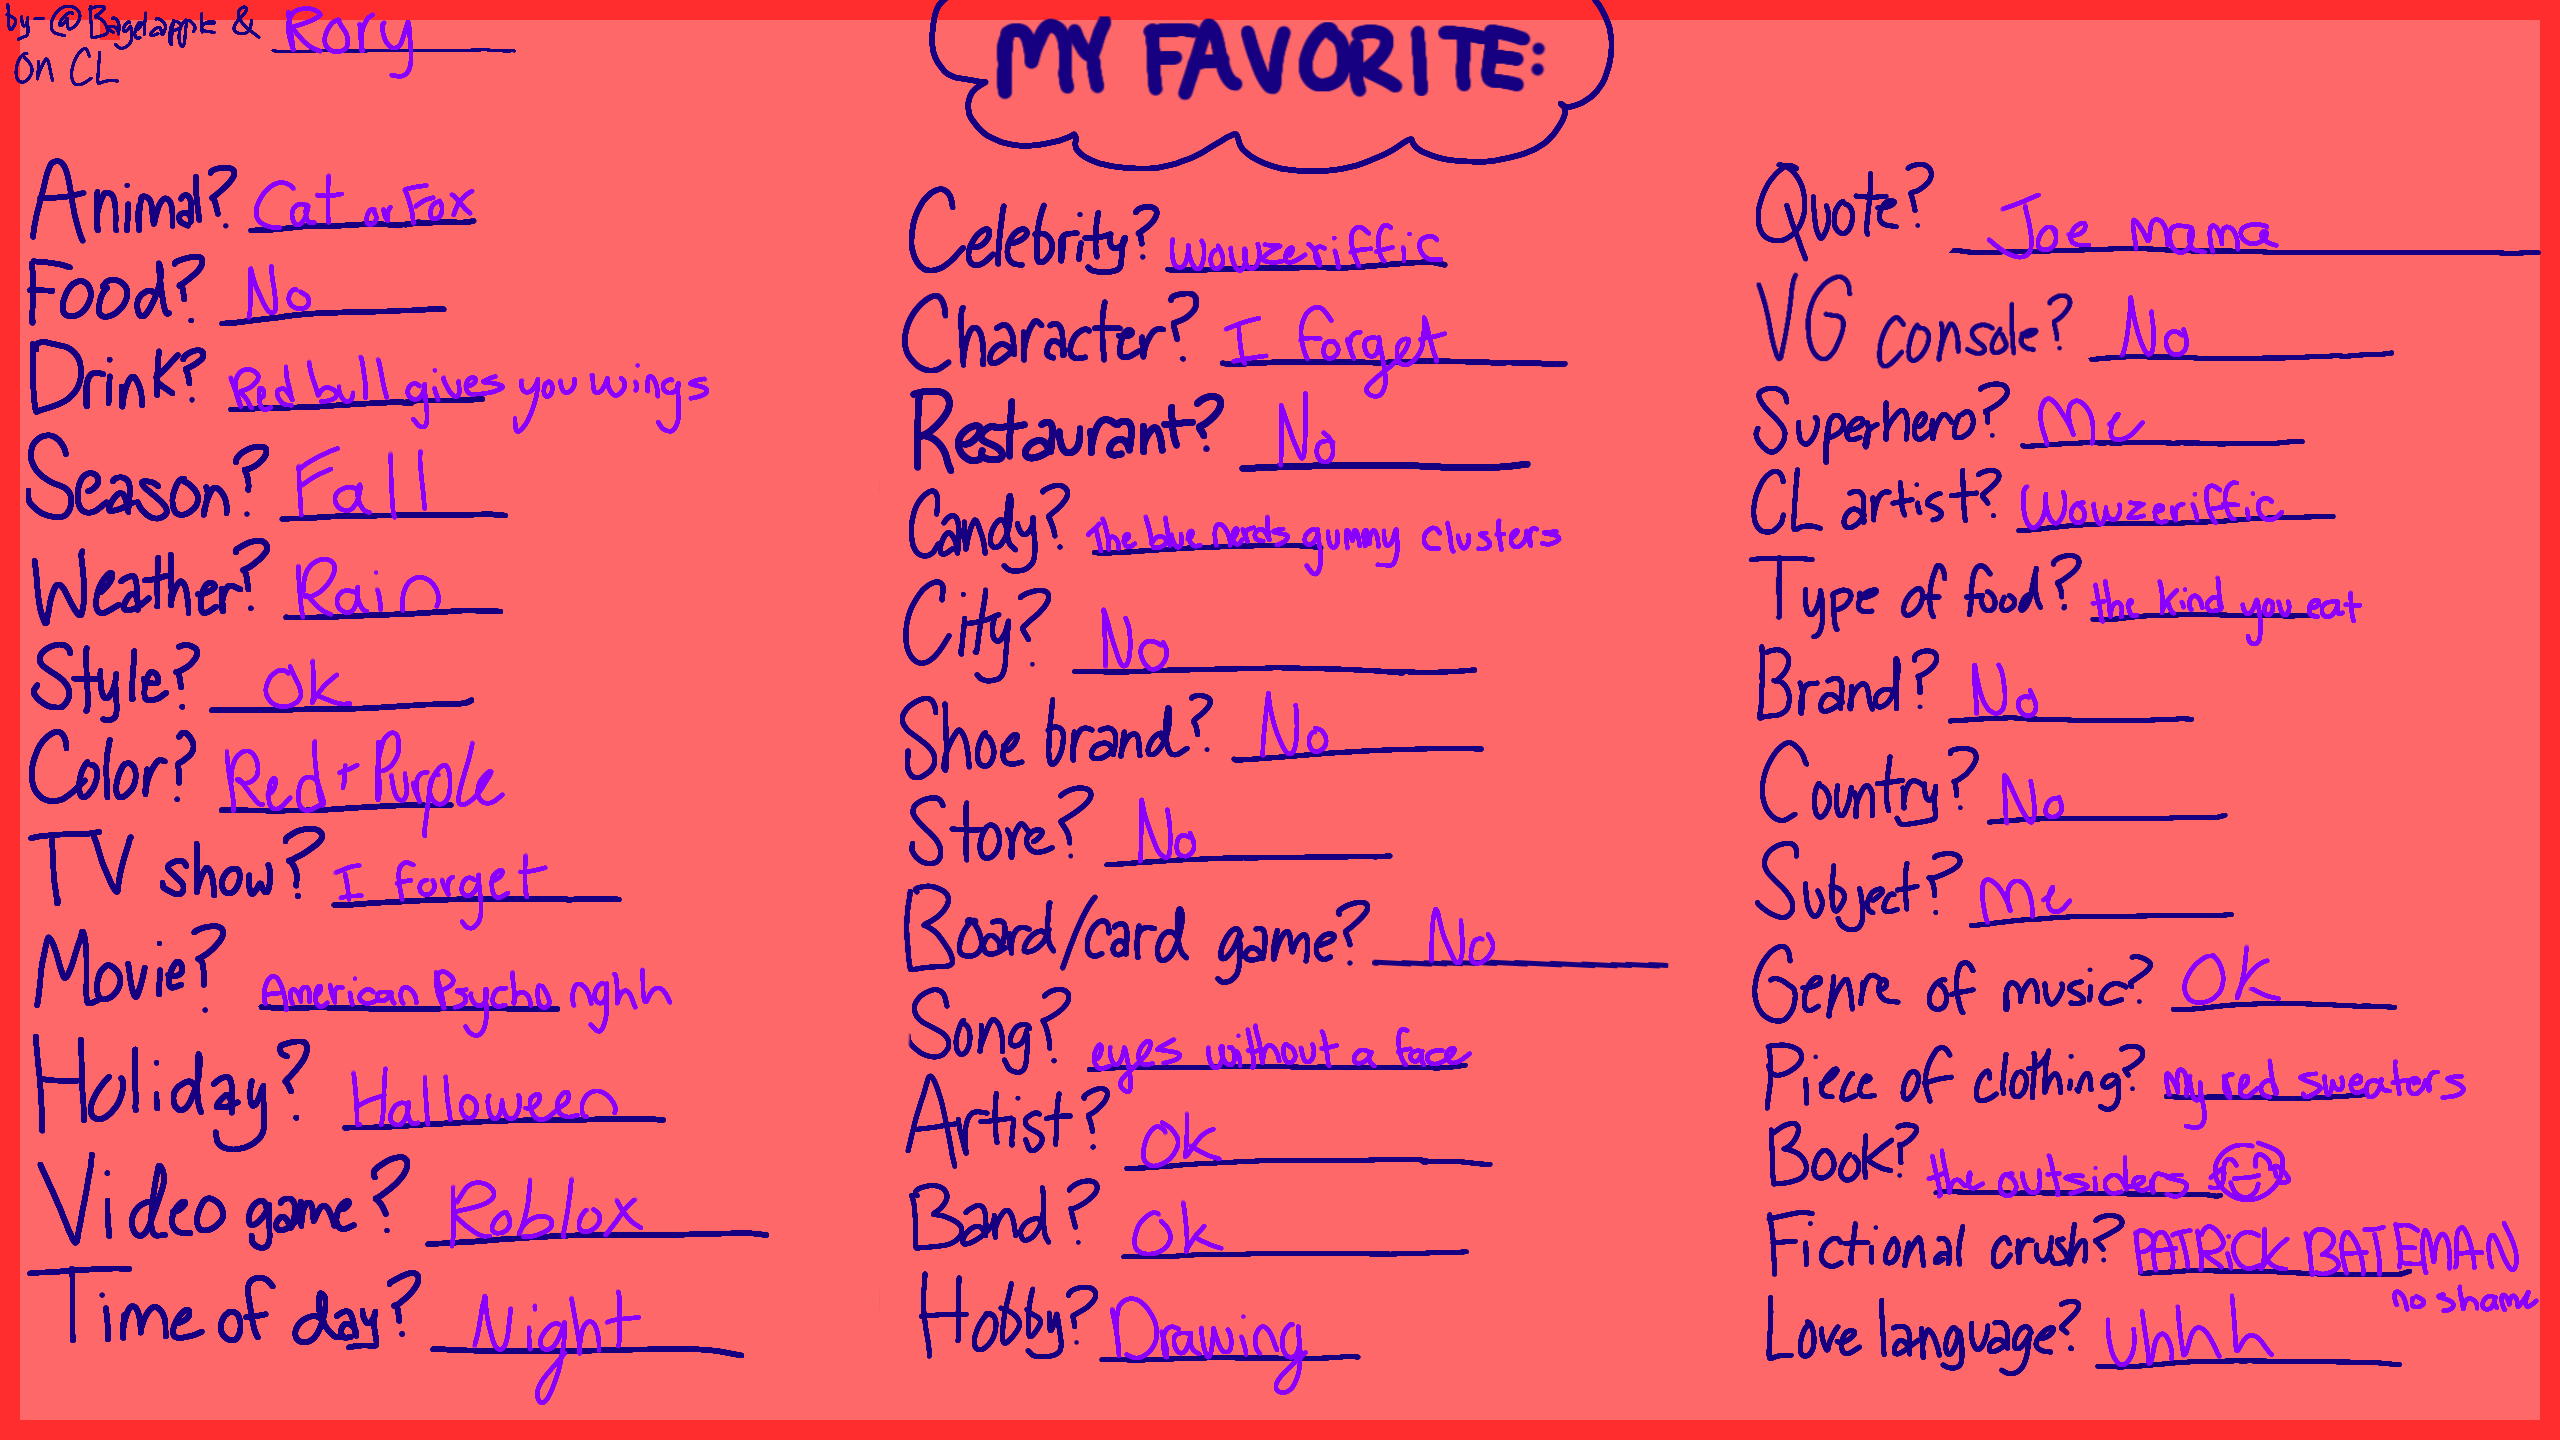 by-@Bagelapple & Rory
on CL
MY FAVORITE:
Animal? Cat or Fox
Food? No
Drink? Red bull gives you wings
Season? Fall
Weather? Rain
Style? Ok
Color? Red + Purple
TV show? I forget
Movie? American Psycho nghh
Holiday? Halloween
Video game? Roblox
Time of day? Night
Celebrity? Wowzeriffic
Character? I forget
Restaurant? No
Candy? The blue nerds gummy clusters
City? No
Shoe brand? No
Store? No
Board/card game? No
Song? eyes without a face
Artist? Ok
Band? Ok
Hobby? Drawing
Quote? Joe mama
VG console? No
Superhero? Me
CL artist? Wowzeriffic
Type of food? the kind you eat
Brand? No
Country? No
Subject? Me
Genre of music? OK
Piece of clothing? My red sweaters
Book? the outsiders
Fictional crush? PATRiCK BATEMAN
no shame
Love language? Uhhh